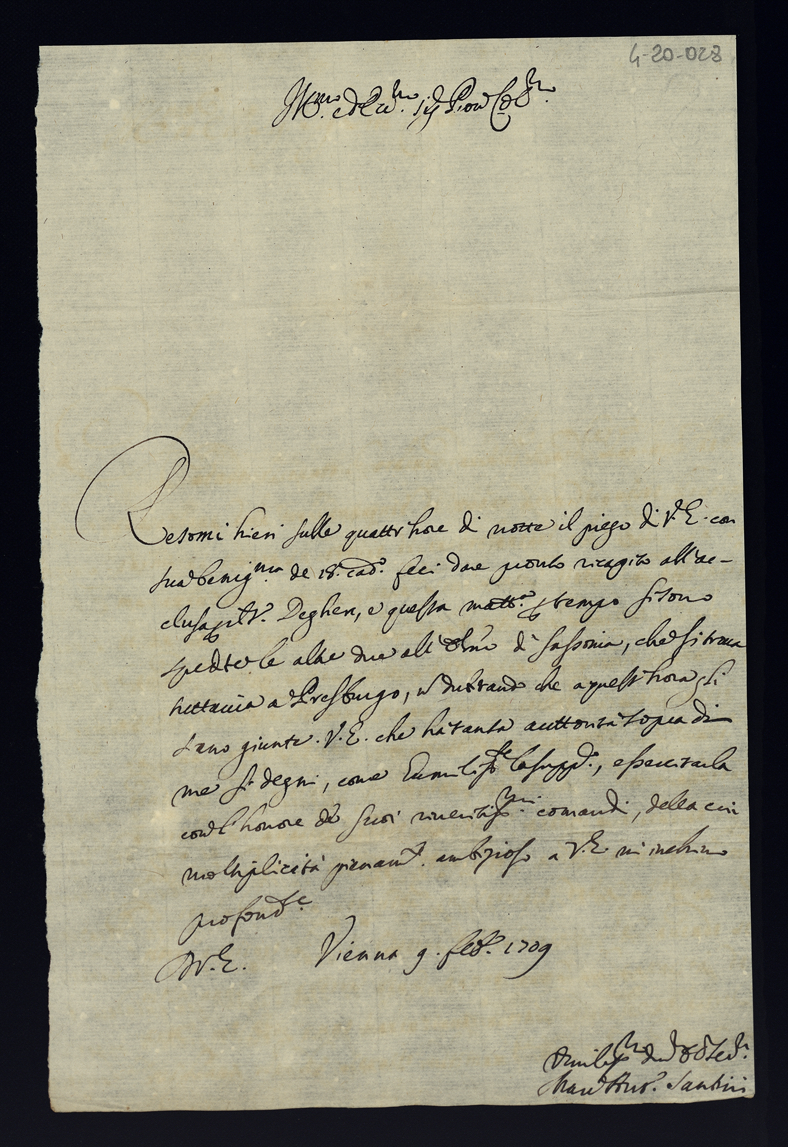 4-20-028
Ill.mo ed Ecc.mo Sig.
Resomi hieri sulle quattr'hore di notte il piego di V.E. con
sua benig.ma de 18. cad.o feci dare pronto ricapito all'ac-
clusa p il Deghen, e questa matt.a p tempo si sono
spedite le altre due all' di Sassonia, che si trova
tuttavia a Presburgo, nè dubitando che a quest'hora gli
siano giunte. V.E. che hà tanta auttorità sopra di
me si degni, come la supp.o, essercitarla
con l'honore de suoi riveritiss.mi comandi, della cui
moltiplicità ambizioso a V.E. m'inchino
profond.te
D V.E. Vienna 9. feb.o 1709
Santini